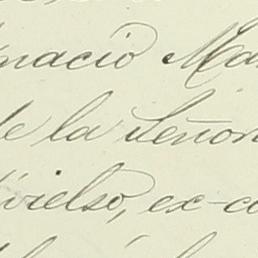 nacio Ma
de la Señor
vielso, ex-c